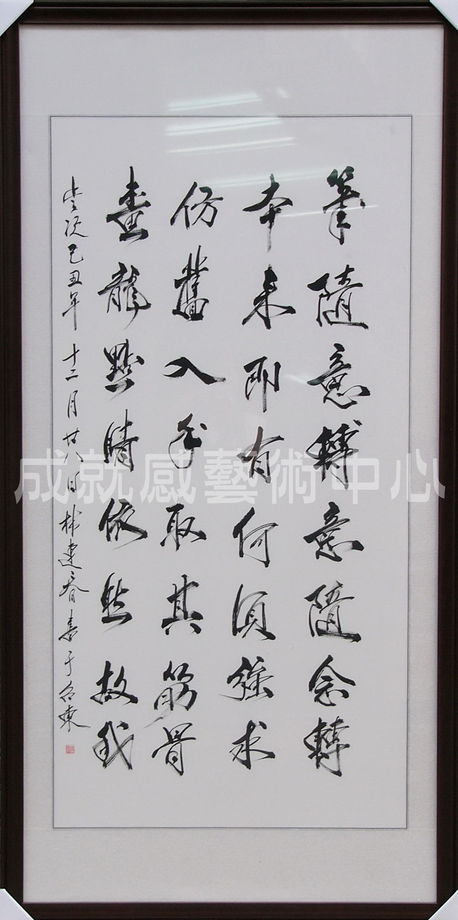 筆隨意轉意隨念轉
本来即有何須強求
仿舊入手取其筋骨
畫龍點睛依然故我
歲次己丑年 十二月廿八日林建春書于台東
成就感藝術中心